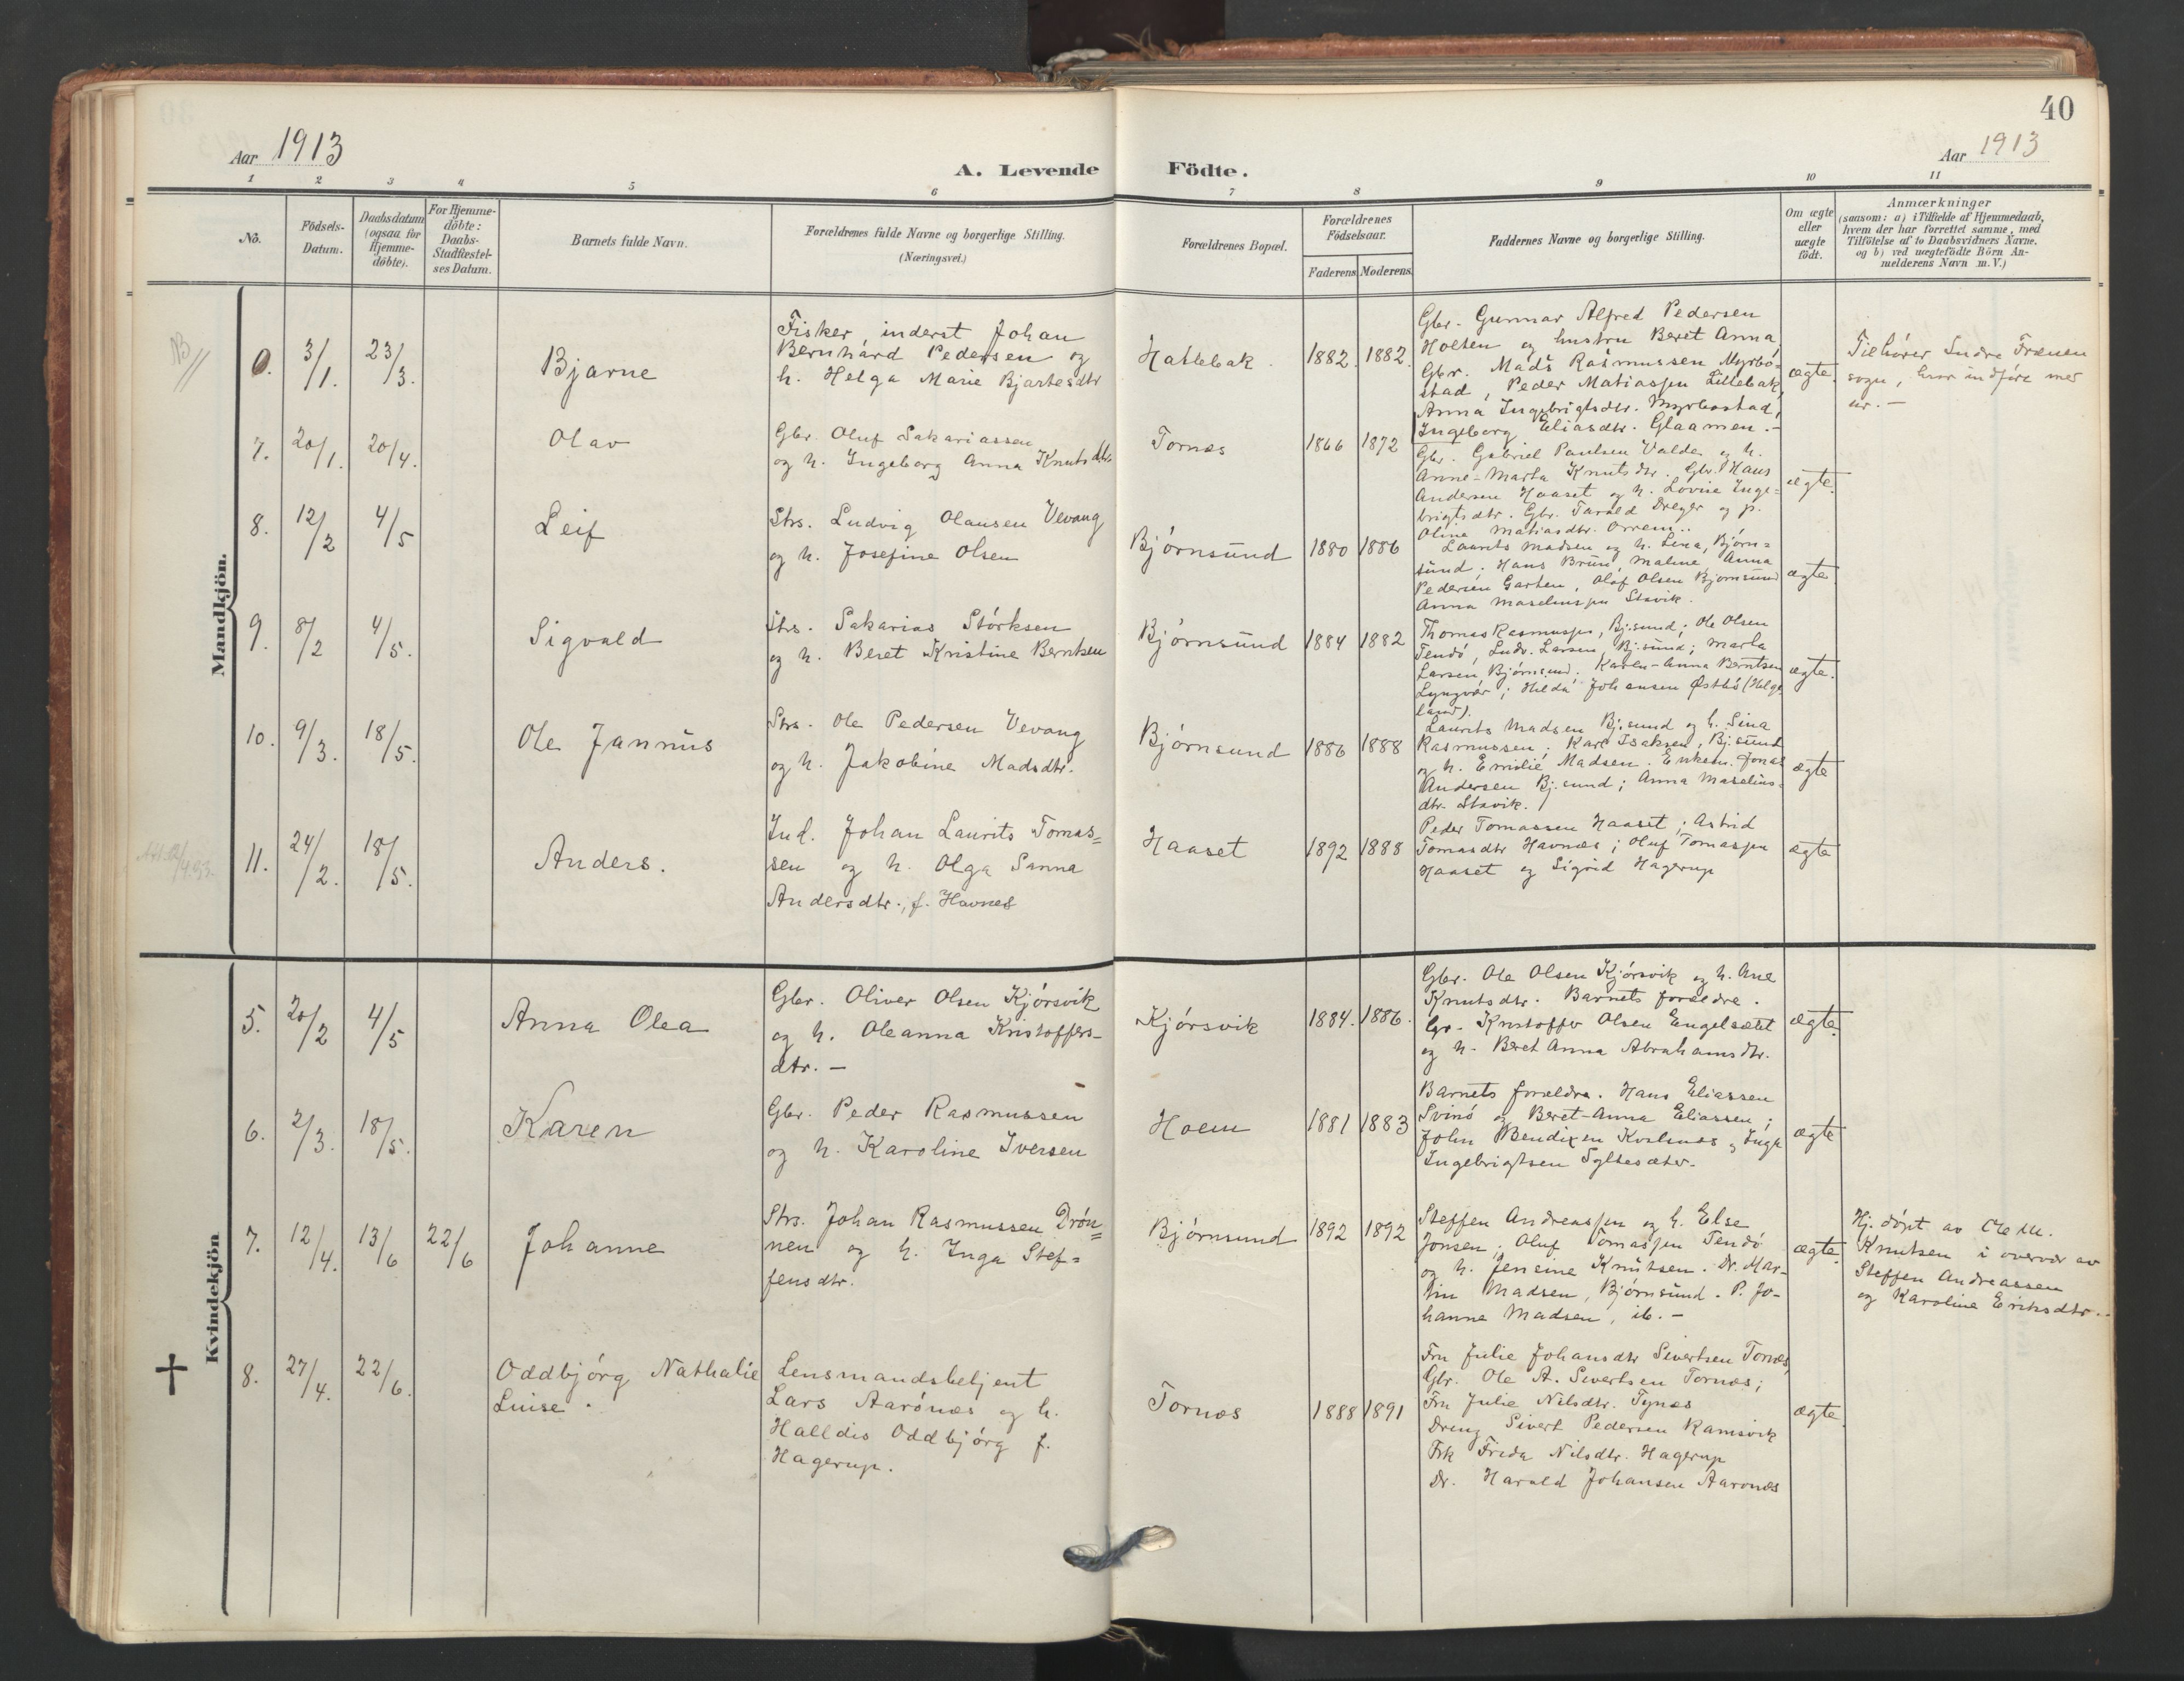 40
Aar 1913
Aar 1913
A. Levende Födte.
1 2 3 4 5 6 7 8 9 10 11
No.
Födsels-
Datum.
Daabsdatum
(ogsaa for
Hjemme-
döbte).
For Hjemme-
döbte:
Daabs-
Stadfæstel-
ses Datum.
Barnets fulde Navn.
Forældrenes fulde Navne og borgerlige Stilling.
(Næringsvei.)
Forældrenes Bopæl.
Forældrenes
Födselsaar.
Faderens Moderens
Faddernes Navne og borgerlige Stilling.
Om ægte
eller
uægte
födt.
Anmærkninger
(saasom: a) i Tilfælde af Hjemmedaab,
hvem der har forrettet samme, med
Tilföielse af to Daabsvidners Navne.
og b) ved uægtefödte Börn An-
melderens Navn m. V.)
Mandkjön.
B//
0. 3/1. 23/3. Bjarne
Fisker, inderst Johan
Bernhard Pedersen og
h. Helga Marie Bjartesdtr
Hattebak. 1882. 1882.
Gbr. Gunnar Alfred Pedersen
Holten og hustru Beret Anna,
Gbr. Mads Rasmussen Myrbo-
stad, Peder Matiassen Lillebak,
Anna Ingebrigtsdtr. Myrbostad,
Ingeborg Eliasdtr. Glaamen.-
ægte.
Tilhører Indre Frænen
sogn, hvor indføres med
nr. -
7. 20/1. 20/4. Olav
Gbr. Oluf Sakariassen
og h. Ingeborg Anna Knutsdtr.
Tornes 1866 1872
Gbr. Gabriel Paulsen Valde og h.
Anne-Marta Knutsdtr. Gbr. Hans
Andersen Haaset og h. Lovise Inge-
brigtsdtr. Gbr. Tarald Dreyer og p.
Oline Matiasdtr. Orrem..
ægte.
8. 12/2 4/5 Leif
Strs. Ludvig Olausen Vevang
og h. Josefine Olsen
Bjørnsund 1880 1886
Laurits Madsen og h. Lina, Bjørn-
sund; Hans Brun, Malme, Anna
Pedersen Garten, Olaf Olsen Bjørnsund
Anna Maseliussen Stavik.
ægte.
9. 8/2 4/5. Sigvald
Strs. Sakarias Størksen
og h. Beret Kristine Berntsen
Bjørnsund 1884 1882
Thomas Rasmussen, Bj.sund; Ole Olsen
Tendø, Ludv. Larsen, Bj.sund; Marta
Larsen, Bjørnsund; Karen-Anna Berntsen
Lyngvær; Hilda Johansen Østbø (Helge-
land).
ægte.
10. 9/3. 18/5. Ole Jannus
Strs. Ole Pedersen Vevang
og h. Jakobine Madsdtr.
Bjørnsund 1886 1888
Laurits Madsen Bj.sund og h. Lina
Rasmussen; Karl Isaksen, Bj.sund
og h. Emilie Madsen. Enkem. Jonas
Andersen Bj.sund; Anna Maselius-
dtr. Stavik.
ægte
11. 24/2. 18/5. Anders.
Ind. Johan Laurits Tomas-
sen og h. Olga Sanna
Andersdtr., f. Havnes
Haaset 1892 1888
Peder Tomassen Haaset; Astrid
Tomasdtr Havnes; Oluf Tomassen
Haaset og Sigrid Hagerup
ægte
Kvindekjön
5. 20/2 4/5 Anna Olea
Gbr. Oliver Olsen Kjørsvik
og h. Oleanna Kristoffers-
dtr. -
Kjørsvik 1884. 1886.
Gbr. Ole Olsen Kjørsvik og h. Ane
Knutsdtr. Barnets forældre.
Gbr. Kristoffer Olsen Engelsætet
og h. Beret Anna Abrahamsdtr.
ægte.
6. 2/3. 18/5. Karen
Gbr. Peder Rasmussen
og h. Karoline Iversen
Hoem 1881 1883
Barnets forældre. Hans Eliassen
Svinø og Beret-Anna Eliassen;
John Bendixen Kvalsnes og Inga
Ingebrigtsen Syltesæter.
ægte
7. 12/4. 13/6 22/6 Johanne
Strs. Johan Rasmussen Drøn-
nen og h. Inga Stef-
fensdtr.
Bjørnsund 1892 1892
Steffen Andreassen og h. Else
Jonsen; Oluf Tomassen Tendø
og h. Jensine Knutsen. Dr. Mar-
tin Madsen, Bjørnsund. P. Jo-
hanna Madsen, ib. -
ægte.
Hj. døpt av Ole M.
Knutsen i overvær av
Steffen Andreassen
og Karoline Eriksdtr..
† 8. 27/4. 22/6. Oddbjørg Nathalie
Luise.
Lensmandsbetjent
Lars Aarønes og h.
Halldis Oddbjørg f.
Hagerup.
Tornes 1888 1891
Fru Julie Johansdtr Sivertsen Tornes,
Gbr. Ole A. Sivertsen Tornes;
Fru Julie Nilsdtr. Tynes
Dreng Sivert Pedersen Ramsvik
Frk Frida Nilsdtr. Hagerup
Dr. Harald Johansen Aarønes
ægte.